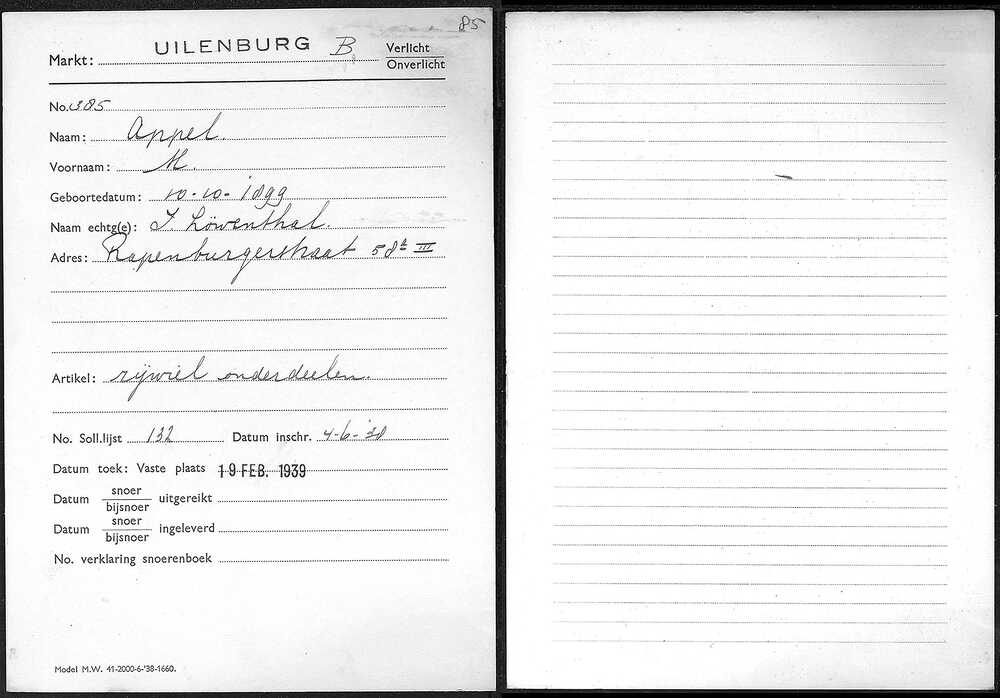 85
Markt: UILENBURG B. Verlicht
Onverlicht
No. 385
Naam: Appel.
Voornaam: M.
Geboortedatum: 10-10-1899
Naam echtg(e): J. Löwenthal.
Adres: Rapenburgerstraat 58 h III
Artikel: rijwiel onderdeelen.
No. Soll.lijst 132 Datum inschr. 4-6-'38
Datum toek: Vaste plaats 19 FEB. 1939
Datum snoer
bijsnoer uitgereikt
Datum snoer
bijsnoer ingeleverd
No. verklaring snoerenboek
Model M.W. 41-2000-6-'38-1660.